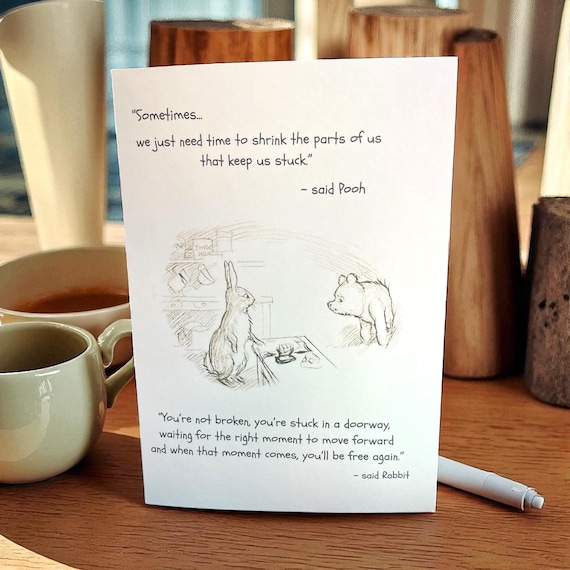 "Sometimes...
we just need time to shrink the parts of us
that keep us stuck."
- said Pooh
"You're not broken, you're stuck in a doorway,
waiting for the right moment to move forward
and when that moment comes, you'll be free again."
- said Rabbit